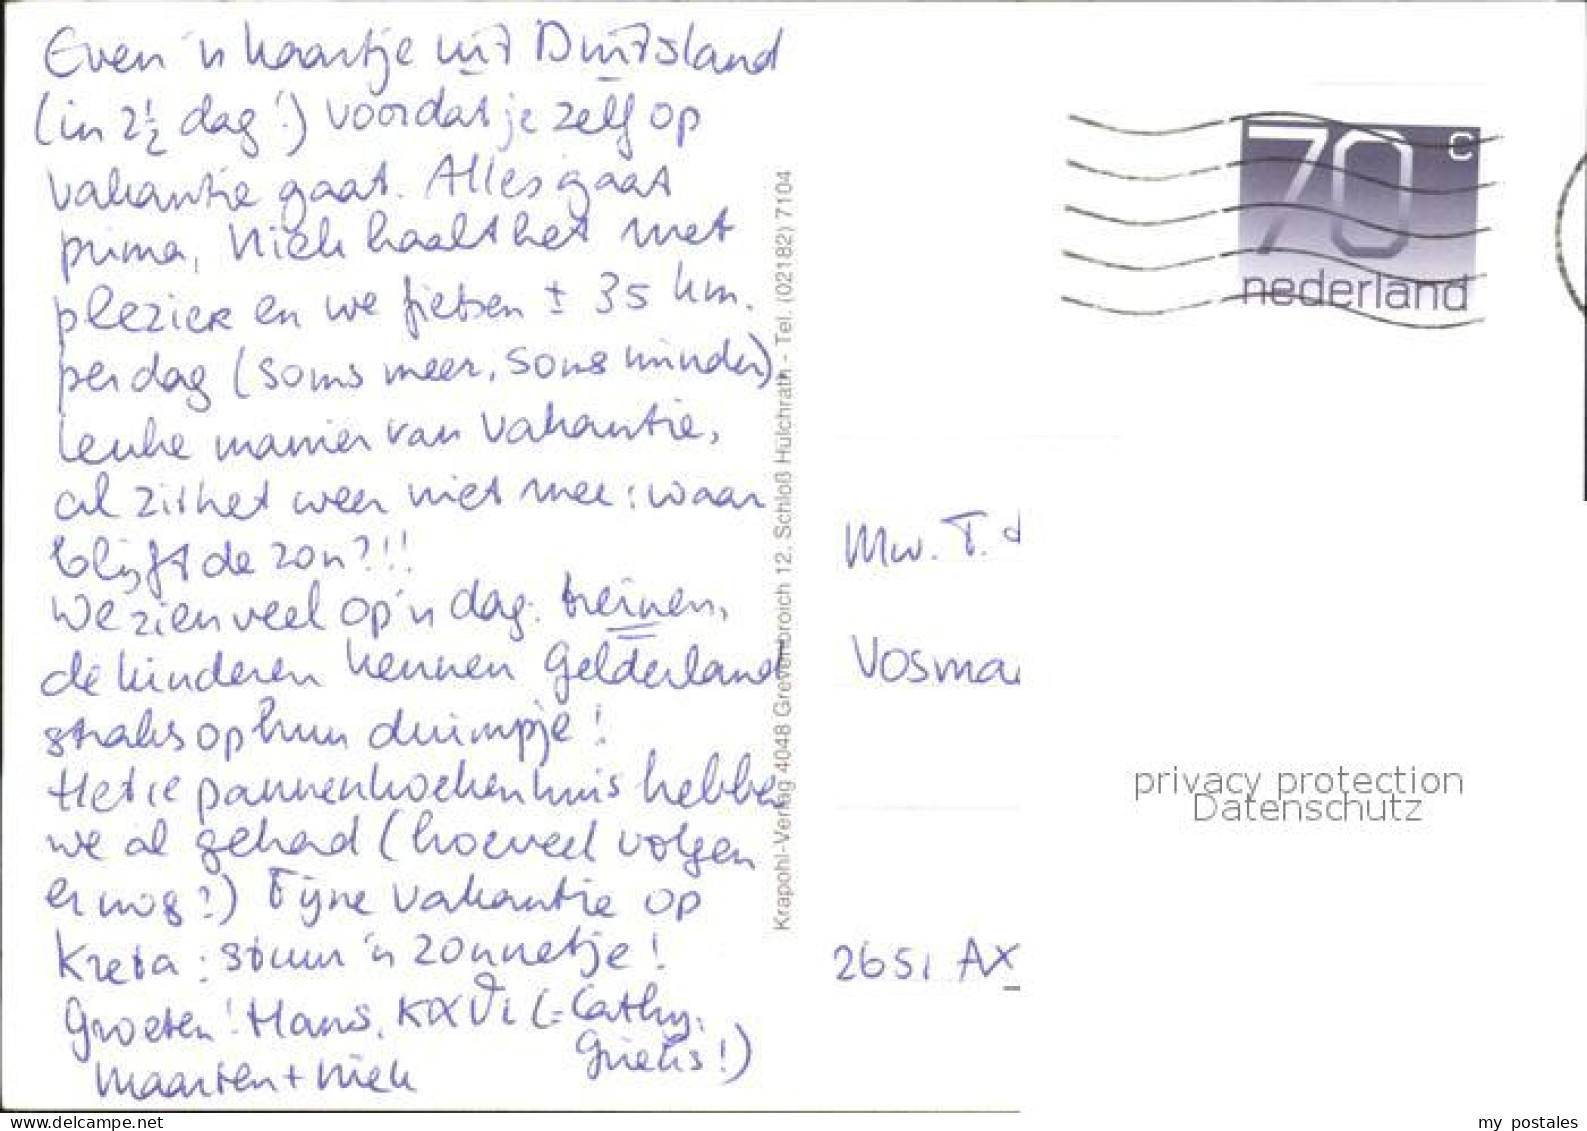 Even 'n kaartje uit Duitsland
(in 2½ dag!) voordat je zelf op
vakantie gaat. Alles gaat
prima, Niek haalt het met
plezier en we fietsen ± 35 km.
per dag (soms meer, soms minder).
Leuke manier van vakantie,
al zit het weer niet mee: waar
blijft de zon?!!!
We zien veel op 'n dag: treinen,
de kinderen kennen Gelderland
straks op hun duimpje!
Het 1e pannenkoekenhuis hebben
we al gehad (hoeveel volgen
er nog?) Fijne vakantie op
Kreta: stuur 'n zonnetje!
Groeten! Hans, (= Cathy,
Grieks!)
Maarten + Niek
Krapohl-Verlag 4048 Grevenbroich 12, Schloß Hülchrath - Tel. (02182) 7104
70 c
nederland
Mw. T. d
Vosma
2651 AX
privacy protection
Datenschutz
www.delcampe.net
my_postales